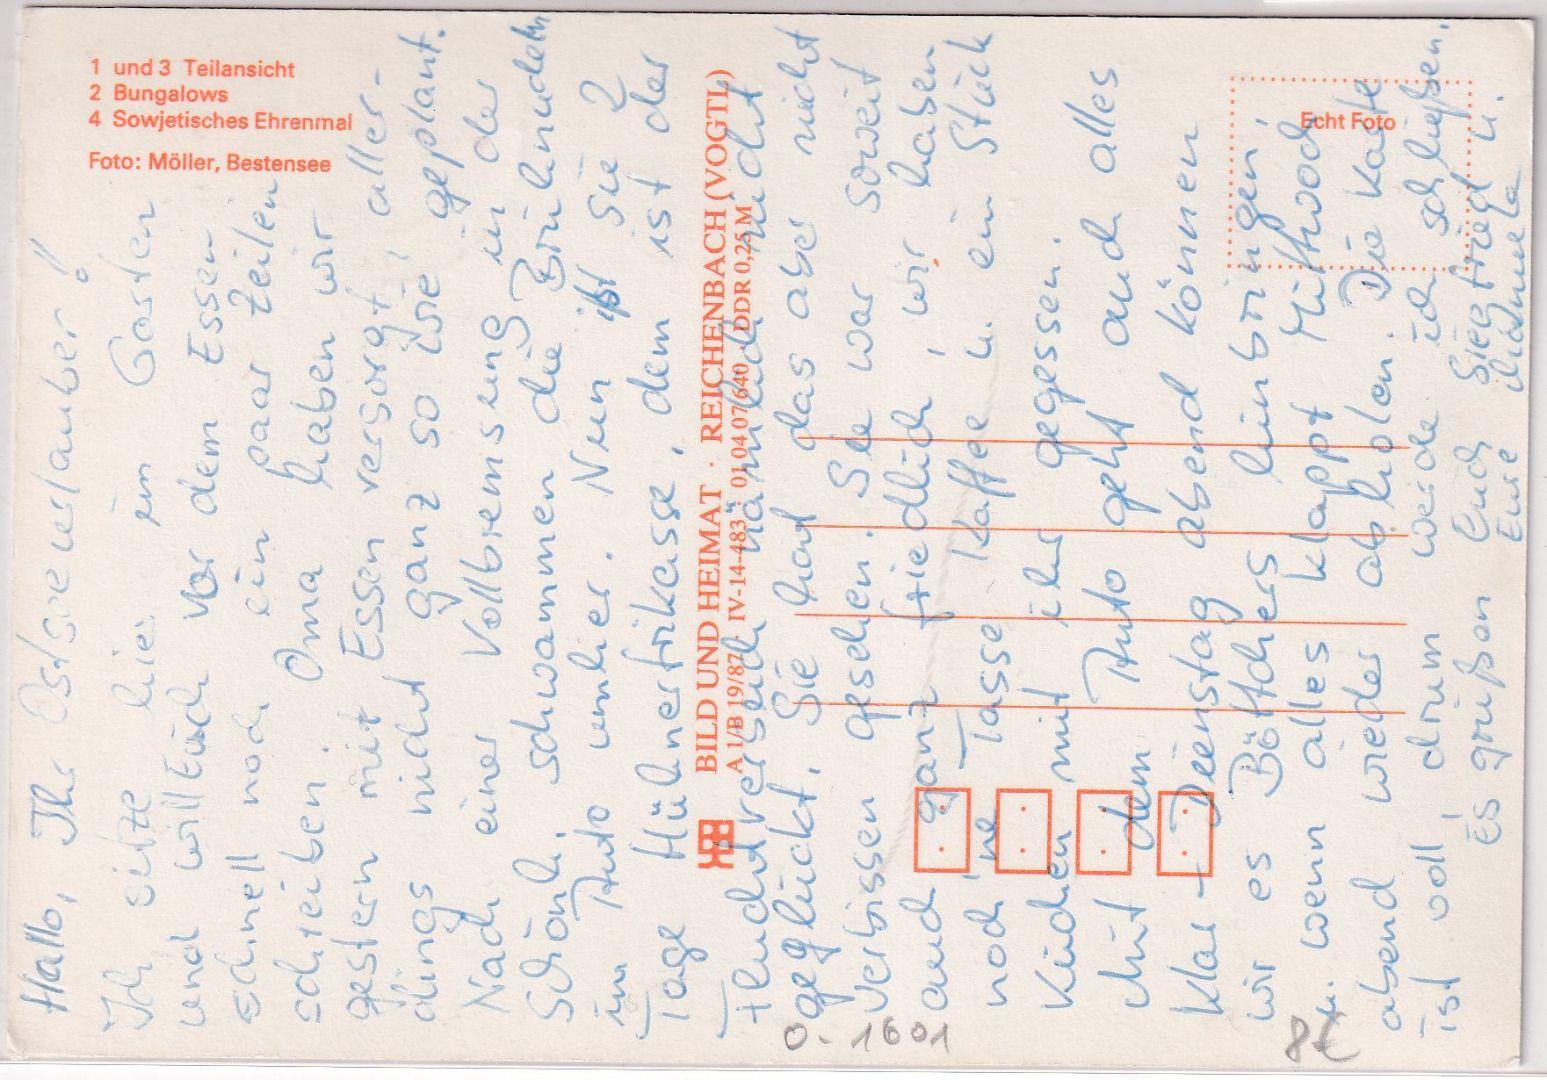 1 und 3 Teilansicht
2 Bungalows
4 Sowjetisches Ehrenmal
Foto: Möller, Bestensee
Echt Foto
BILD UND HEIMAT · REICHENBACH (VOGTL)
A 1/B 19/87 IV-14-483 01 04 07 640 DDR 0,25 M
Hallo, Ihr Ostseeurlauber!
Ich sitze hier im Garten
und will Euch vor dem Essen
schnell noch ein paar Zeilen
schreiben. Oma haben wir
gestern mit Essen versorgt, aller-
dings nicht ganz so wie geplant.
Nach einer Vollbremsung in der
Schönh. schwammen die Brühnudeln
im Auto umher. Nun ißt sie 2
Tage Hühnerfrikasse, dem ist der
Fluchtversuch nämlich nicht
geglückt. Sie hat das aber nicht
verbissen gesehen. Sie war soweit
auch ganz friedlich, wir haben
noch 'ne Tasse Kaffee u. ein Stück
Kuchen mit ihr gegessen.
Mit dem Auto geht auch alles
klar – Dienstag abend können
wir es Böttchers hinbringen,
u. wenn alles klappt Mittwoch
abend wieder abholen. Die Karte
ist voll, drum werde ich schließen.
Es grüßen Euch Siegfried u.
Eure
0-1601
8€